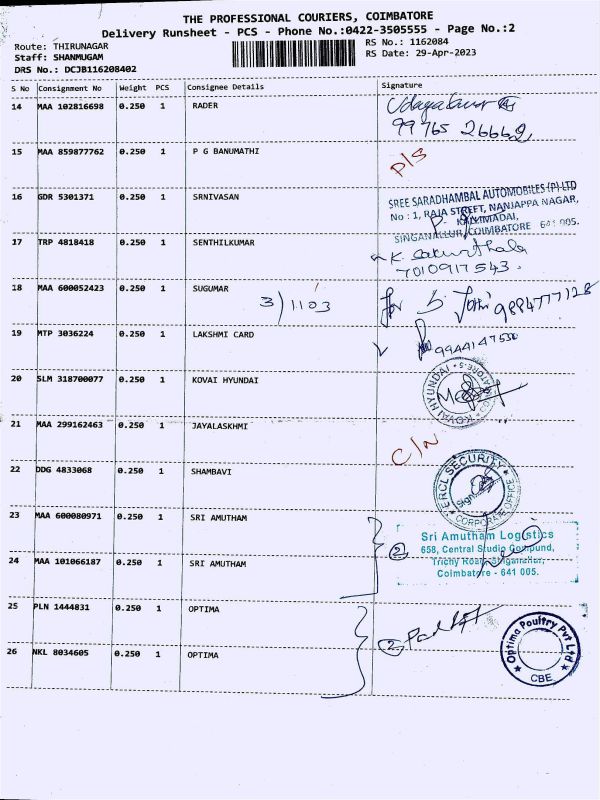 THE PROFESSIONAL COURIERS, COIMBATORE
Delivery Runsheet - PCS - Phone No.:0422-3505555 - Page No.:2
Route: THIRUNAGAR
RS No.: 1162084
Staff: SHANMUGAM
RS Date: 29-Apr-2023
DRS No.: DCJB116208402
S No Consignment No Weight PCS Consignee Details Signature
14 MAA 102816698 0.250 1 RADER
99765 26662
15 MAA 859877762 0.250 1 P G BANUMATHI
P/S
16 GDR 5301371 0.250 1 SRNIVASAN
SREE SARADHAMBAL AUTOMOBILES (P) LTD
No : 1, RAJA STREET, NANJAPPA NAGAR,
SINGANALLUR, COIMBATORE 641 005.
17 TRP 4818418 0.250 1 SENTHILKUMAR
7010917543.
18 MAA 600052423 0.250 1 SUGUMAR
3/1103
for S. Jothi 9884777128
19 MTP 3036224 0.250 1 LAKSHMI CARD
9944147530
20 SLM 318700077 0.250 1 KOVAI HYUNDAI
KOVAI HYUNDAI
21 MAA 299162463 0.250 1 JAYALASKHMI
C/N
22 DDG 4833068 0.250 1 SHAMBAVI
ERCL SECURITY
Sign
CORPORATE OFFICE
23 MAA 600080971 0.250 1 SRI AMUTHAM
2
Sri Amutham Logistics
658, Central Studio Compund,
Trichy Road, Singanallur,
Coimbatore - 641 005.
24 MAA 101066187 0.250 1 SRI AMUTHAM
25 PLN 1444831 0.250 1 OPTIMA
2
Optima Poultry Pvt Ltd
CBE
26 NKL 8034605 0.250 1 OPTIMA